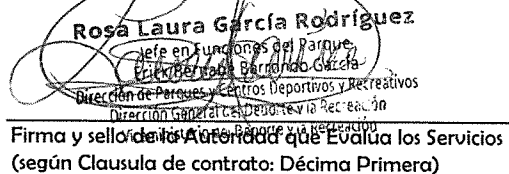 Rosa Laura García Rodríguez
Jefe en Funciones del Parque
Erick Bernabé Barrondo García
Dirección de Parques y Centros Deportivos y Recreativos
Dirección General del Deporte y la Recreación
Viceministerio del Deporte y la Recreación
Firma y sello de la Autoridad que Evalúa los Servicios
(según Clausula de contrato: Décima Primera)